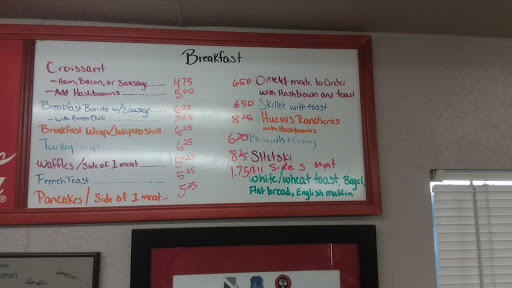 Breakfast
Croissant
-Ham, Bacon, or Sausage...... 475
-Add Hashbrowns............ 500
Breakfast Burrito w/ Sausage...... 625
-with Green Chili........... 725
Breakfast Wrap/Jalapeno Shell... 625
Turkey 625
Waffles/side of 1 meat.... 525
French Toast........ 525
Pancakes/Side of 1 meat... 525
650 Omelet made to Order
with Hashbrown and toast
650 Skillet with toast
825 Huevos Rancheros
with Hashbrowns
625 Biscuits
825 SHitSki
1.75 All Sides
White/wheat toast, Bagel,
Flat bread, English muffin